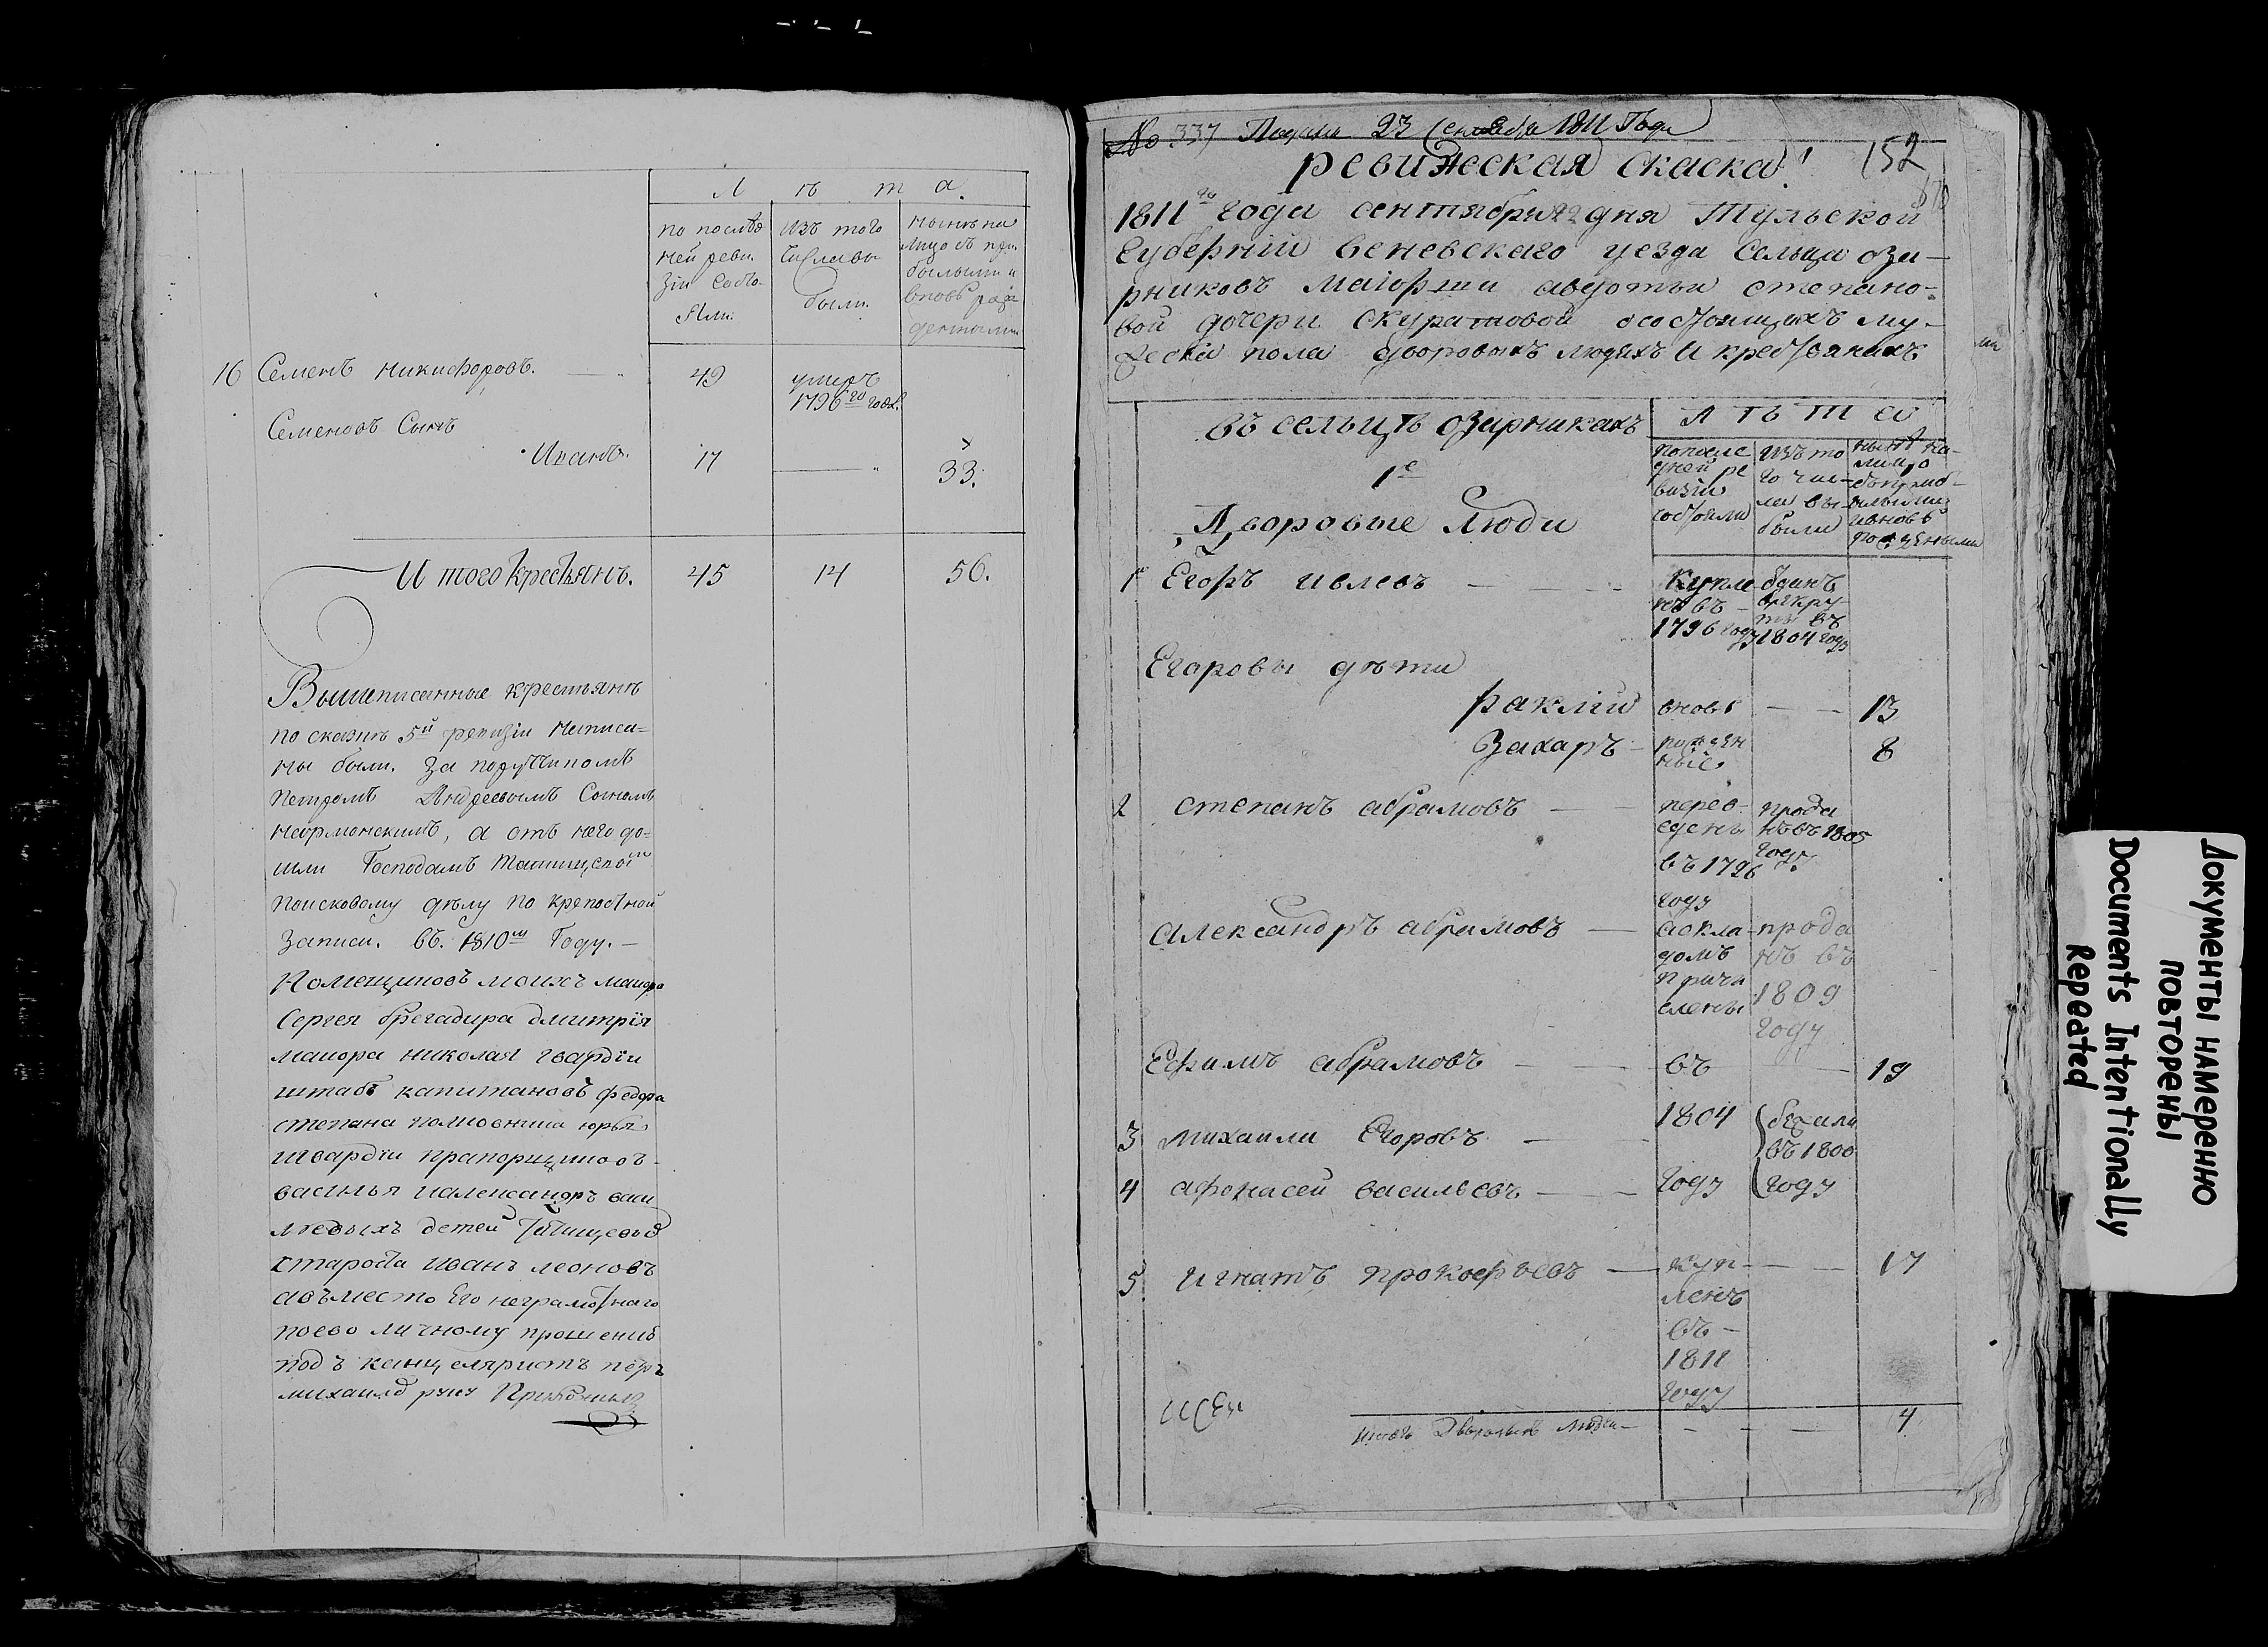 Л ѣ т а.
по послѣд
ней реви.
зіи состо-
яли.
изъ того
числа вы
были.
нынѣ на
лицо съ при
былыми и
вновь рож
денными
16 Семенъ никифоровъ. — 49 умеръ
1796го года.
Семеновъ Сынъ
Иванъ. 17 — 33.
И того крестьянъ. 45 14 56.
Вышеписанные крестьянѣ
по сказкѣ 5й ревизіи написа=
ны были. за подпутчикомъ
петромъ Андреевымъ Сыномъ
а отъ него до=
шли Господамъ
поисковому дѣлу по крепостной
записи. въ. 1810м Году. —
Помещиковъ моихъ маиора
Сергея брегадира дмитрія
маиора николая гвардіи
штабъ капитановъ федора
степана полковника юрья
игвардіи прапорщиковъ
василья иалександръ васи
льевыхъ детей Татищевыхъ
староста иванъ леоновъ
авъместо Его неграмотнаго
поево личному прошению
подъ канцеляристъ петръ
михаилъ руку Приложилъ
№ 337 Подана 23 Сентября 1811 Года
ревижская скаска! 152
1811го года сентября 22 дня Тульской
Губерніи веневскаго уезда Сельца ози—
рниковъ маіорши авдотьи степано-
вой дочери скуратовой осостоящихъ му-
жеска пола дворовыхъ людяхъ и крестьянахъ
въ сельцѣ озирникахъ
1е
Дворовые Люди
Л ѣ т а
попосле
дней ре
визіи
состояли
изъ то
го чис-
ла вы
были
нынѣ на-
лицо
сприб-
ылыми
ивновь
рождеными
1 Егоръ ивлевъ — купле
нъ въ
1796 году
отданъ
врекру-
ты въ
1804 году
Егоровы дѣти
раклій вновь — 13
Захаръ — рожден
ные 8
2 степанъ абрамовъ — перев-
едены
въ 1796
году
прода
нъ въ 1805
году
александръ абрамовъ —
домъ
причи
слены
прода
нъ въ
1809
году
Ефимъ абрамовъ — въ — 19
3 михаила Егоровъ — 1804 бежали
въ 1800
4 афонасей васильевъ — году году
5 игнатъ прокофьевъ — куп— — 17
ленъ
въ —
1811
году
Итого Дворовыхъ людей — - - — 4
Документы намеренно
повторены
Documents Intentionally
Repeated